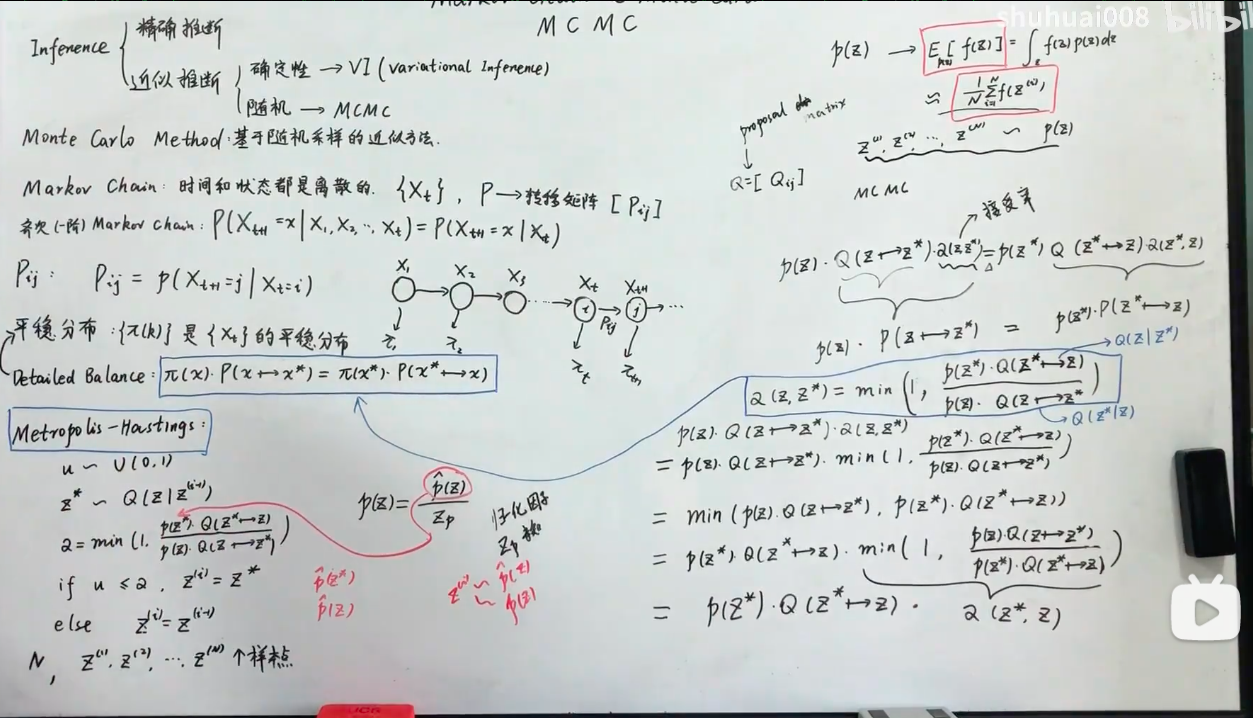 MCMC
shuhuai008 bilibili
Inference { 精确推断
近似推断 { 确定性 → VI (variational Inference)
随机 → MCMC
Monte Carlo Method: 基于随机采样的近似方法.
Markov Chain: 时间和状态都是离散的. {X_t}, P → 转移矩阵 [P_ij]
齐次(一阶) Markov Chain: P(X_{t+1}=x | X_1, X_2, ..., X_t) = P(X_{t+1}=x | X_t)
P_ij: P_ij = p(X_{t+1}=j | X_t=i)
X_1 X_2 X_3 X_t X_{t+1}
i P_ij j
π_1 π_2 π_t π_{t+1}
平稳分布: {π(k)} 是 {X_t} 的平稳分布
Detailed Balance: π(x)·P(x↦x*) = π(x*)·P(x*↦x)
Metropolis-Hastings:
u ~ U(0,1)
z* ~ Q(z|z^(i-1))
α = min(1, p(z*)·Q(z*↦z) / p(z)·Q(z↦z*))
if u ≤ α, z^(i) = z*
else z^(i) = z^(i-1)
N, z^(1), z^(2), ..., z^(N) 个样本点
p(z) = p̂(z) / z_p
归一化因子
z_p
p̂(z*)
p̂(z)
z^(i) ~ p̂(z)
~ p(z)
p(z) → E_{p(z)}[f(z)] = ∫_z f(z)p(z)dz
≈ 1/N Σ_{i=1}^N f(z^(i))
z^(1), z^(2), ..., z^(N) ~ p(z)
MCMC
proposal matrix
↓
Q=[Q_ij]
接受率
p(z)·Q(z↦z*)·α(z,z*) = p(z*) Q(z*↦z)·α(z*,z)
p(z)·P(z↦z*) = p(z*)·P(z*↦z)
α(z,z*) = min(1, p(z*)·Q(z*↦z) / p(z)·Q(z↦z*))
Q(z|z*)
Q(z*|z)
p(z)·Q(z↦z*)·α(z,z*)
= p(z)·Q(z↦z*)·min(1, p(z*)·Q(z*↦z) / p(z)·Q(z↦z*))
= min(p(z)·Q(z↦z*), p(z*)·Q(z*↦z))
= p(z*)·Q(z*↦z)·min(1, p(z)·Q(z↦z*) / p(z*)·Q(z*↦z))
= p(z*)·Q(z*↦z)·α(z*,z)